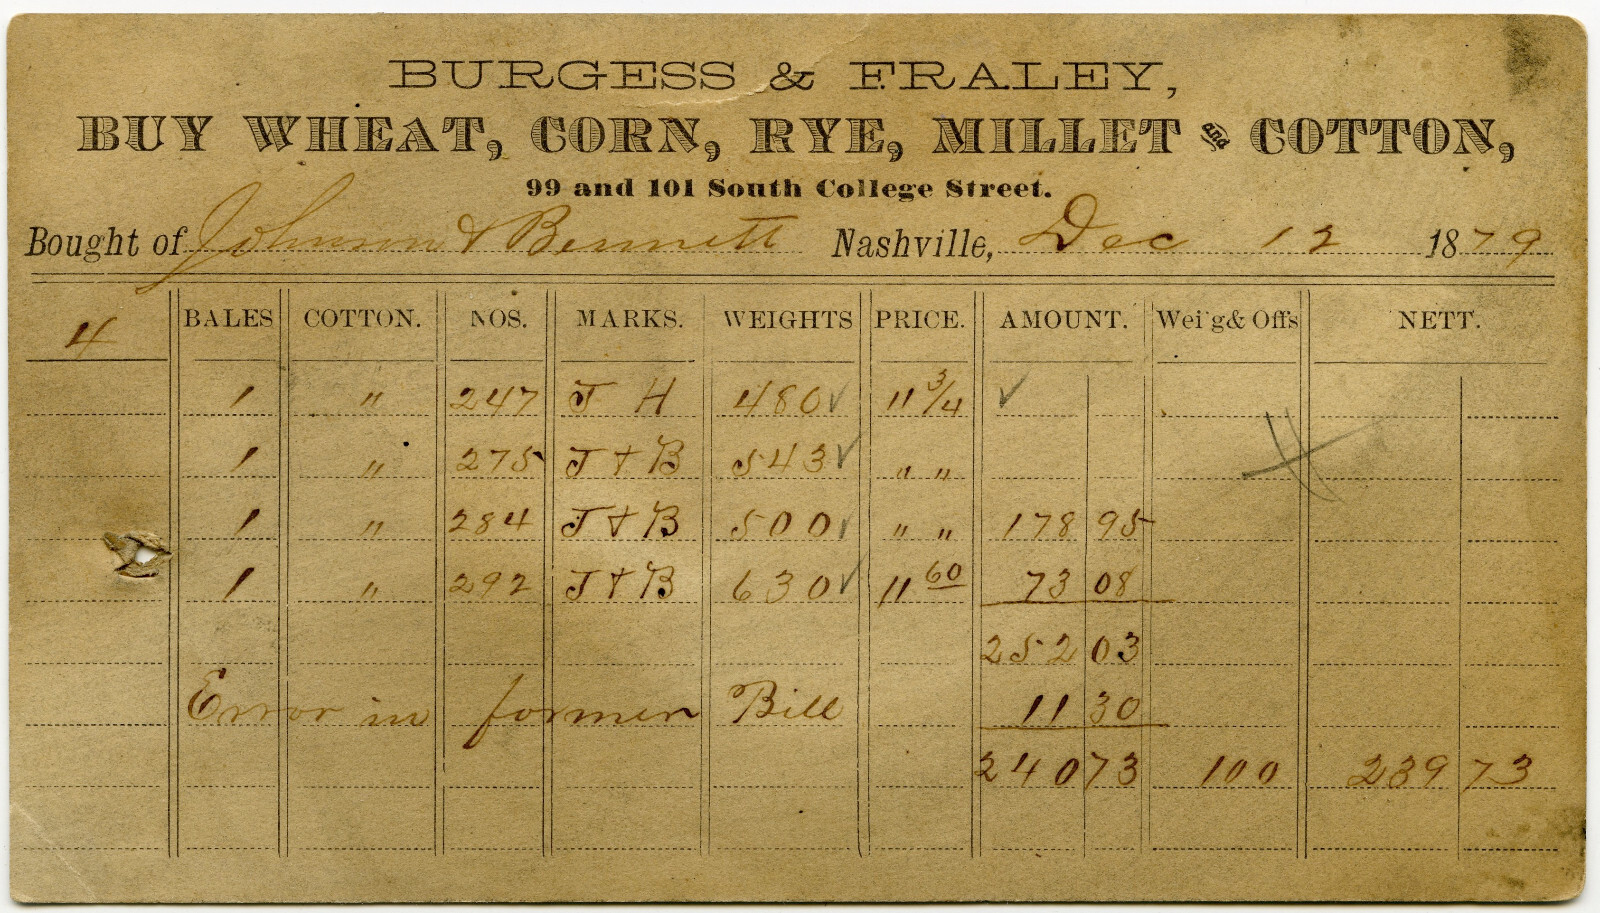 BURGESS & FRALEY,
BUY WHEAT, CORN, RYE, MILLET and COTTON,
99 and 101 South College Street.
Bought of Johnson & Bennett Nashville, Dec 12 1879
4 BALES COTTON. NOS. MARKS. WEIGHTS PRICE. AMOUNT. Wei'g& Offs NETT.
1 " 247 J H 480 11 3/4
1 " 275 J & B 543 " "
1 " 284 J & B 500 " " 178 95
1 " 292 J & B 630 11 60 73 08
252 03
Error in former Bill 11 30
240 73 100 239 73